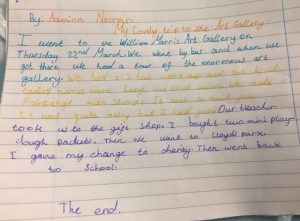 By. Aamina Noman
My Lovely trip to the Art Gallery.
I went to the William Morris Art Gallery on
Thursday 22nd March. We went by bus and when we
got there we had a tour of the enormous art
gallery. We had a 2 hour workshop and our kind
names were Lucy, and we made
Paintings with stamps. It was
It was quite messy but I had fun. Our teacher
took us to the gift shop. I bought two mini play-
dough packets. Then we went to Lloyds park.
I gave my change to charity. Then went back
to School.
The end.